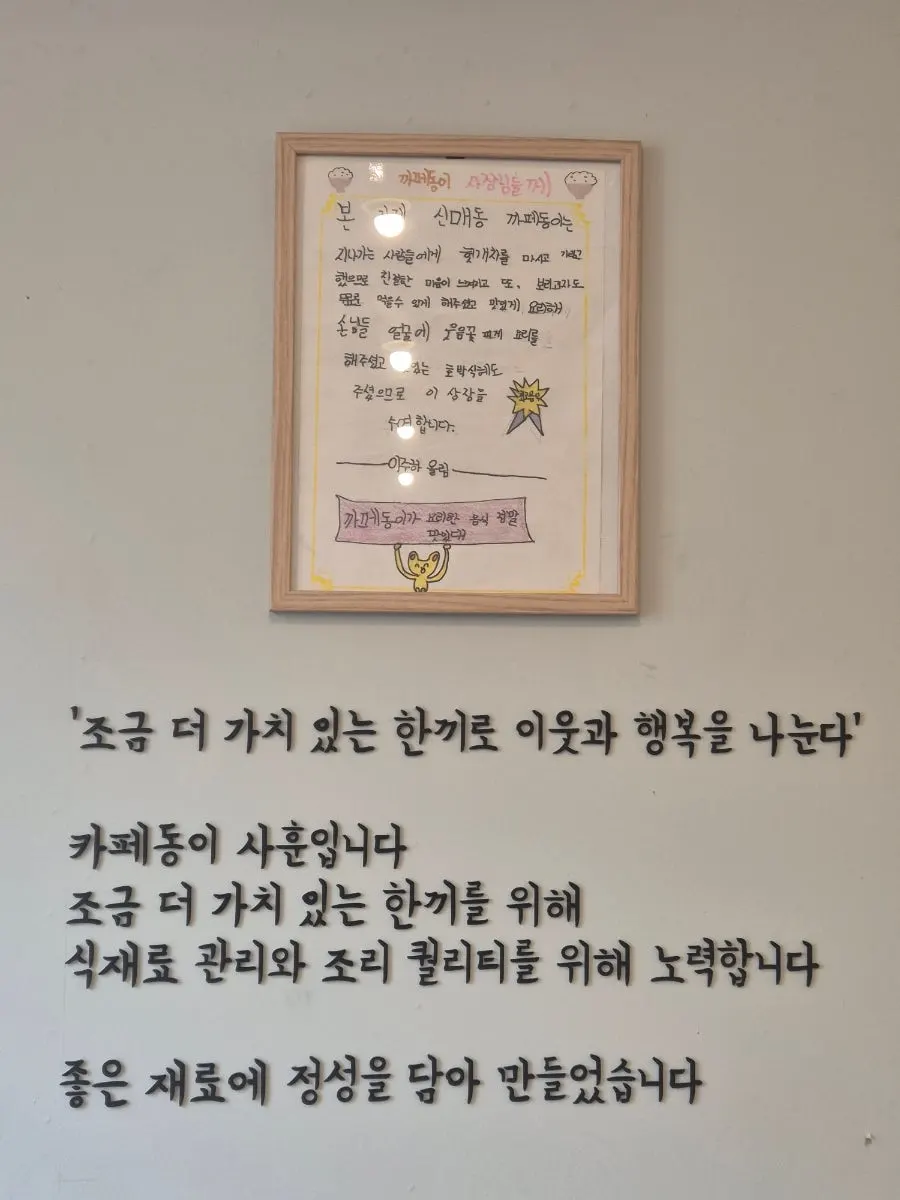 까페동이 사장님들께
본 신매동 까페동이는
지나가는 사람들에게 헛개차를 마시고 가라고
했으므로 친절한 마음이 느껴지고 또, 보리고자도
먹을수 있게 해주셨고 맛있게 요리해서
손님들 얼굴에 웃음꽃 피게 요리를
해주셨고 호박식혜도
주셨으므로 이 상장을
수여합니다.
이주하 올림
까페동이가 요리한 음식 정말
맛있다!
'조금 더 가치 있는 한끼로 이웃과 행복을 나눈다'
카페동이 사훈입니다
조금 더 가치 있는 한끼를 위해
식재료 관리와 조리 퀄리티를 위해 노력합니다
좋은 재료에 정성을 담아 만들었습니다